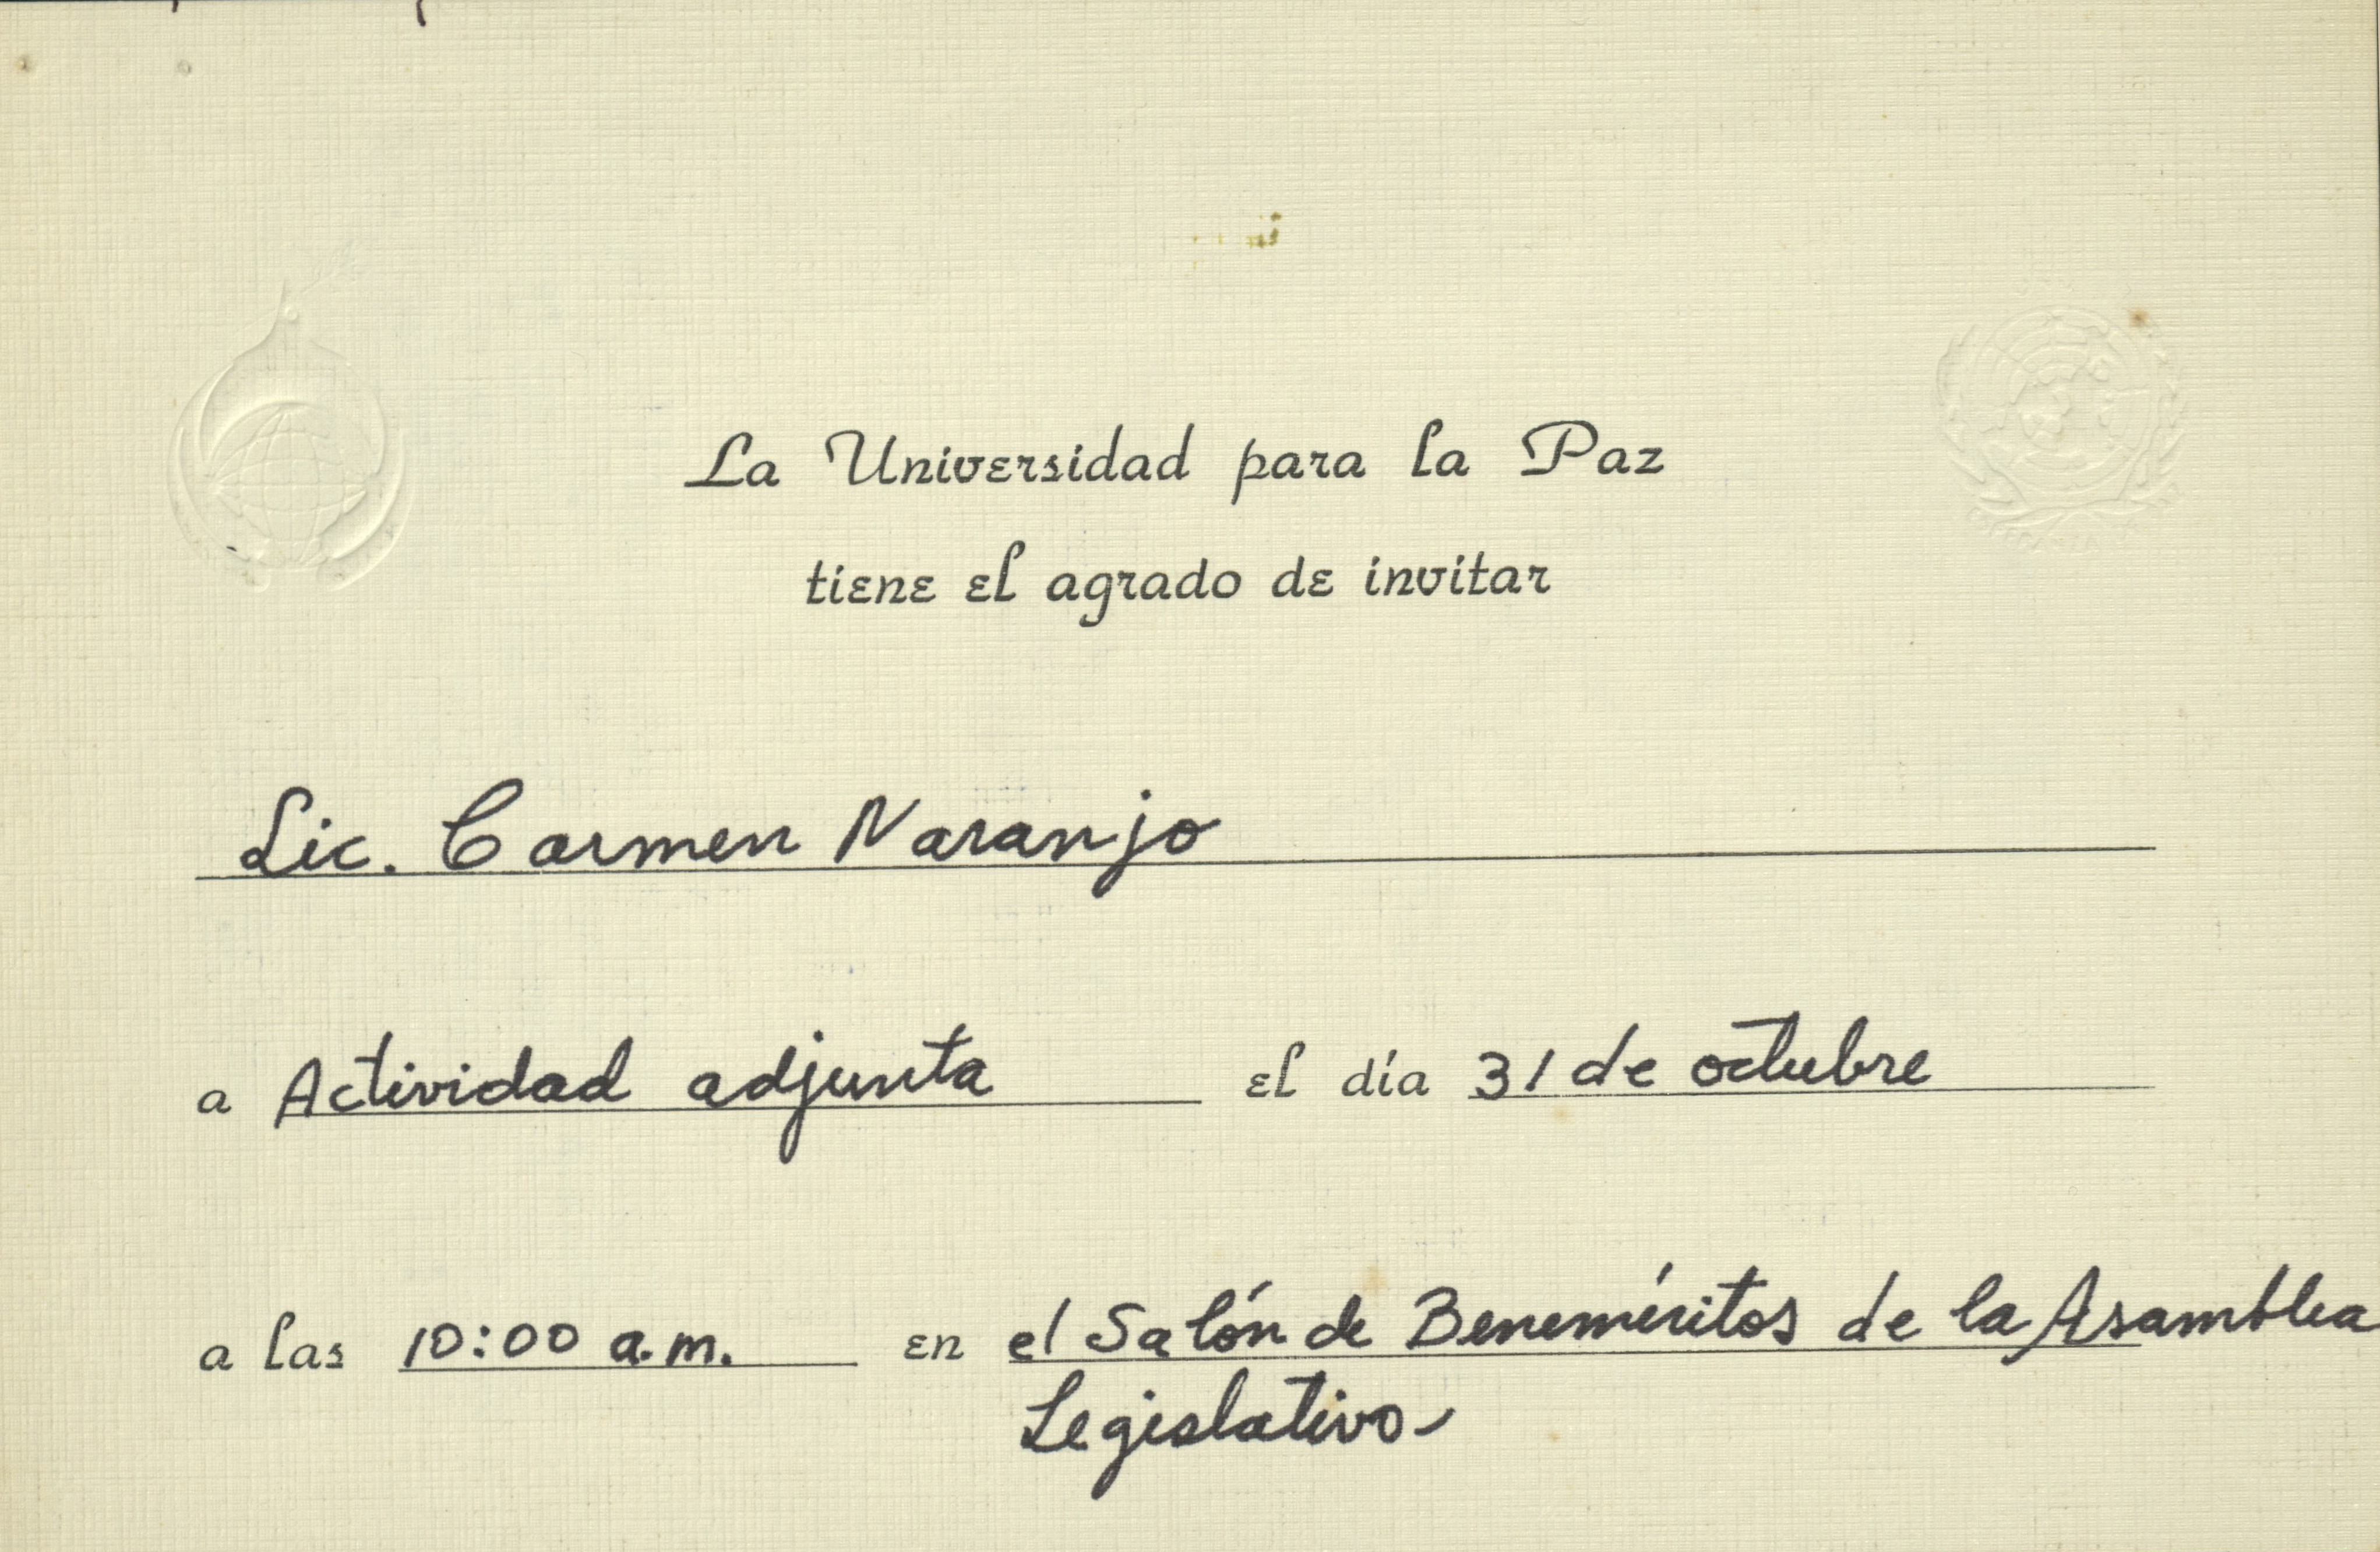 La Universidad para la Paz
tiene el agrado de invitar
Lic. Carmen Naranjo
a Actividad adjunta el día 31 de octubre
a las 10:00 a.m. en el Salón de Beneméritos de la Asamblea
Legislativo